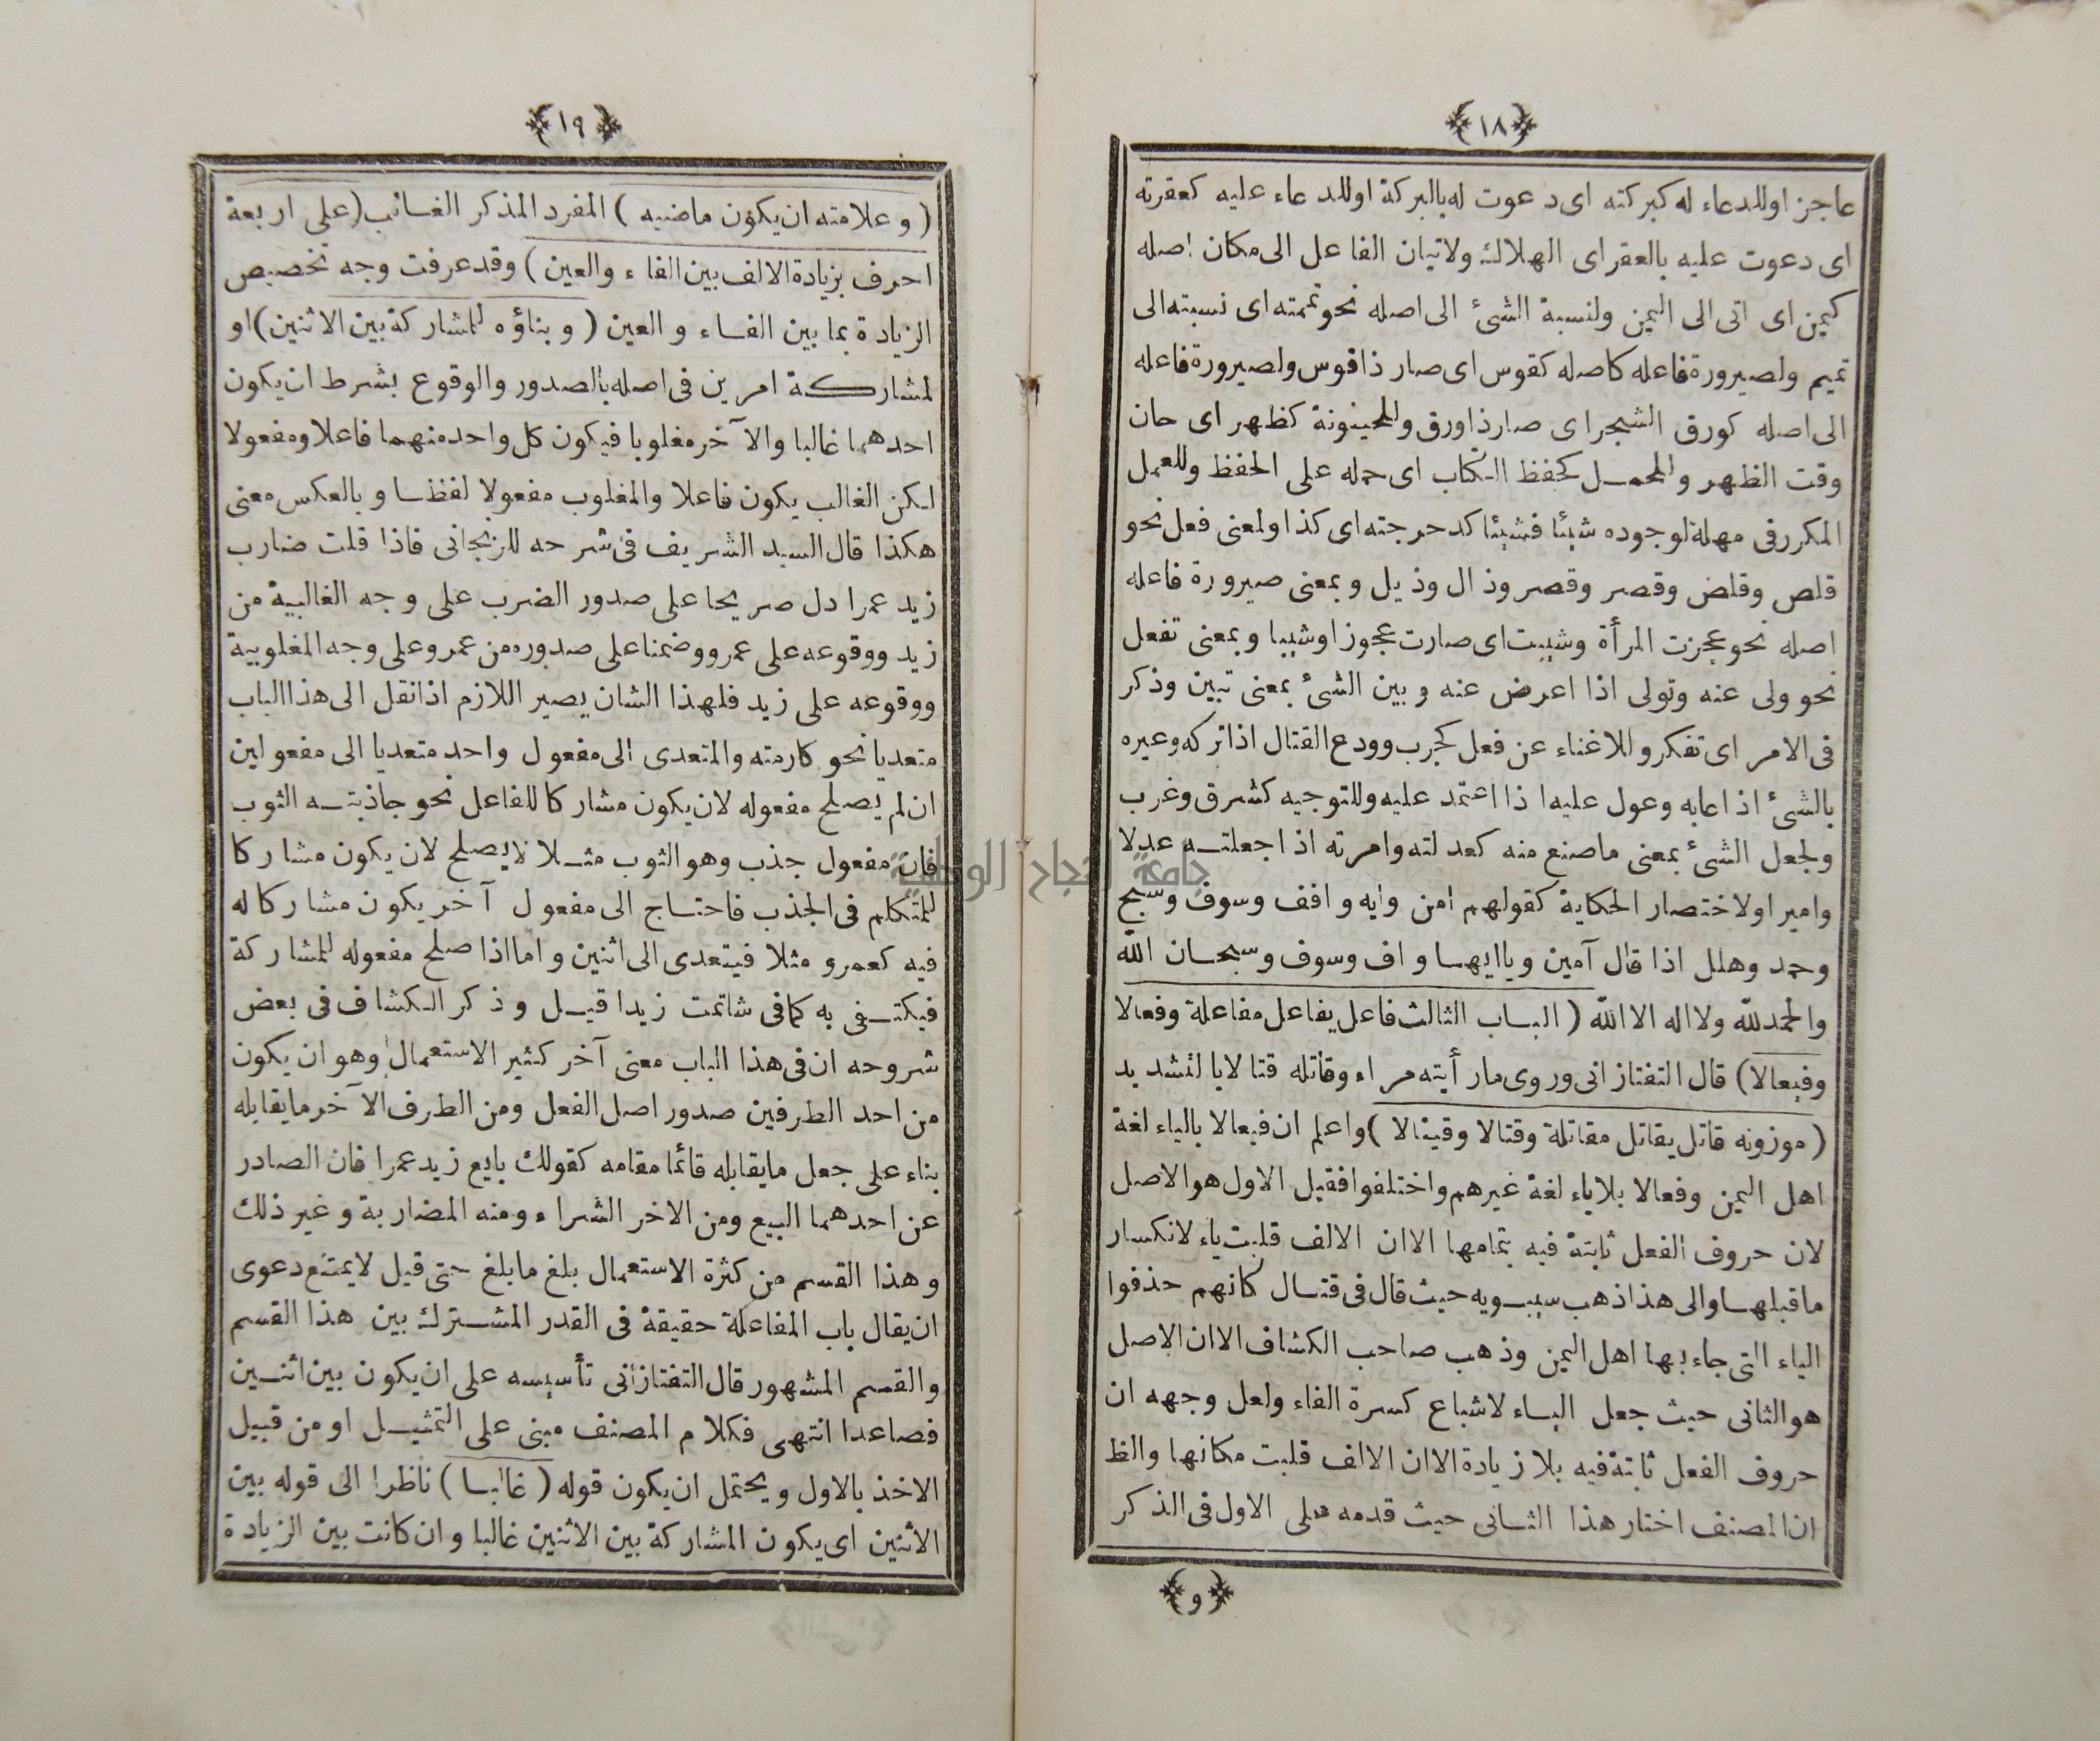 ﴿١٨﴾
عاجز اوللدعاء له كبركته اى دعوت له بالبركة اوللدعاء عليه كعقرته
اى دعوت عليه بالعقر اى الهلاك ولاتيان الفاعل الى مكان اصله
كيمن اى اتى الى اليمن ولنسبة الشئ الى اصله نحو تممته اى نسبته الى
تميم ولصيرورة فاعله كاصله كقوس اى صار ذا قوس ولصيرورة فاعله
الى اصله كورق الشجر اى صار ذا ورق وللحينونة كظهر اى حان
وقت الظهر وللحمل كحفظ الكتاب اى حمله على الحفظ وللعمل
المكرر فى مهلة لوجوده شيئا فشيئا كدحرجته اى كذا ولمعنى فعل نحو
قلص وقلض وقصر وقصر وذال وذيل وبمعنى صيرورة فاعله
اصله نحو عجزت المرأة وشيبت اى صارت عجوزا وشيبا وبمعنى تفعل
نحو ولى عنه وتولى اذا اعرض عنه وبين الشئ بمعنى تبين وذكر
فى الامر اى تفكر وللاغناء عن فعل كجرب وودع القتال اذا تركه وعيره
بالشئ اذا عابه وعول عليه اذا اعتمد عليه وللتوجيه كشرق وغرب
ولجعل الشئ بمعنى ما صنع منه كعدلته وامرته اذا جعلته عدلا
وامير اولاختصار الحكاية كقولهم امن وايه وافف وسوف وسبح
وحمد وهلل اذا قال آمين ويا ايها واف وسوف وسبحان الله
والحمد لله ولا اله الا الله ( الباب الثالث فاعل يفاعل مفاعلة وفعالا
وفيعالا) قال التفتازانى وروى مارأيته مراء وقاتله قتالا بالتشديد
( موزونه قاتل يقاتل مقاتلة وقتالا وقيتالا ) واعلم ان فيعالا بالياء لغة
اهل اليمن وفعالا بلا ياء لغة غيرهم واختلفوا فقيل الاول هو الاصل
لان حروف الفعل ثابتة فيه بتمامها الا ان الالف قلبت ياء لانكسار
ما قبلها والى هذا ذهب سيبويه حيث قال فى قتال كانهم حذفوا
الياء التى جاء بها اهل اليمن وذهب صاحب الكشاف الا ان الاصل
هو الثانى حيث جعل الياء لاشباع كسرة الفاء ولعل وجهه ان
حروف الفعل ثابتة فيه بلا زيادة الا ان الالف قلبت مكانها والظ
ان المصنف اختار هذا الثانى حيث قدمه على الاول فى الذكر
﴿و﴾
﴿١٩﴾
( وعلامته ان يكون ماضيه ) المفرد المذكر الغائب ( على اربعة
احرف بزيادة الالف بين الفاء والعين ) وقد عرفت وجه تخصيص
الزيادة بما بين الفاء والعين ( وبناؤه للمشاركة بين الاثنين ) او
لمشاركة امرين فى اصله بالصدور والوقوع بشرط ان يكون
احدهما غالبا والآخر مغلوبا فيكون كل واحد منهما فاعلا ومفعولا
لكن الغالب يكون فاعلا والمغلوب مفعولا لفظا وبالعكس معنى
هكذا قال السيد الشريف فى شرحه للزنجانى فاذا قلت ضارب
زيد عمرا دل صريحا على صدور الضرب على وجه الغالبية من
زيد ووقوعه على عمرو وضمنا على صدوره من عمرو على وجه المغلوبية
ووقوعه على زيد فلهذا الشان يصير اللازم اذا نقل الى هذا الباب
متعديا نحو كارمته والمتعدى الى مفعول واحد متعديا الى مفعولين
ان لم يصلح مفعوله لان يكون مشاركا للفاعل نحو جاذبته الثوب
فان مفعول جذب وهو الثوب مثلا لا يصلح لان يكون مشاركا
للمتكلم فى الجذب فاحتاج الى مفعول آخر يكون مشاركا له
فيه كعمرو مثلا فيتعدى الى اثنين واما اذا صلح مفعوله للمشاركة
فيكتفى به كما فى شاتمت زيدا قيل وذكر الكشاف فى بعض
شروحه ان فى هذا الباب معنى آخر كثير الاستعمال وهو ان يكون
من احد الطرفين صدور اصل الفعل ومن الطرف الآخر ما يقابله
بناء على جعل ما يقابله قائما مقامه كقولك بايع زيد عمرا فان الصادر
عن احدهما البيع ومن الاخر الشراء ومنه المضاربة وغير ذلك
وهذا القسم من كثرة الاستعمال بلغ ما بلغ حتى قيل لا يمتنع دعوى
ان يقال باب المفاعلة حقيقة فى القدر المشترك بين هذا القسم
والقسم المشهور قال التفتازانى تأسيسه على ان يكون بين اثنين
فصاعدا انتهى فكلام المصنف مبنى على التمثيل او من قبيل
الاخذ بالاول ويحتمل ان يكون قوله ( غالبا ) ناظرا الى قوله بين
الاثنين اى يكون المشاركة بين الاثنين غالبا وان كانت بين الزيادة
جامعة النجاح الوطنية